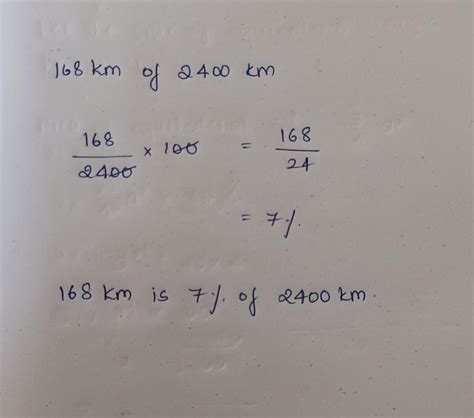 168 km of 2400 km
168/2400 × 100 = 168/24
= 7%
168 km is 7% of 2400 km.